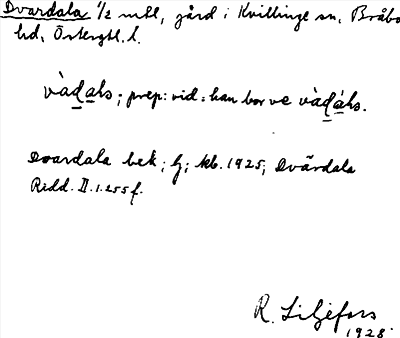 Dvardala 1/2 mtl, gård i Kvillinge sn, Bråbo
hd, Östergtl. l.
vàdaḷs; prep: vid: han bor ve vàdáḷs.
Dvardala bek; G; kb. 1925; Dvärdala
Ridd. II.1.255 f.
R. Liljefors
1928.